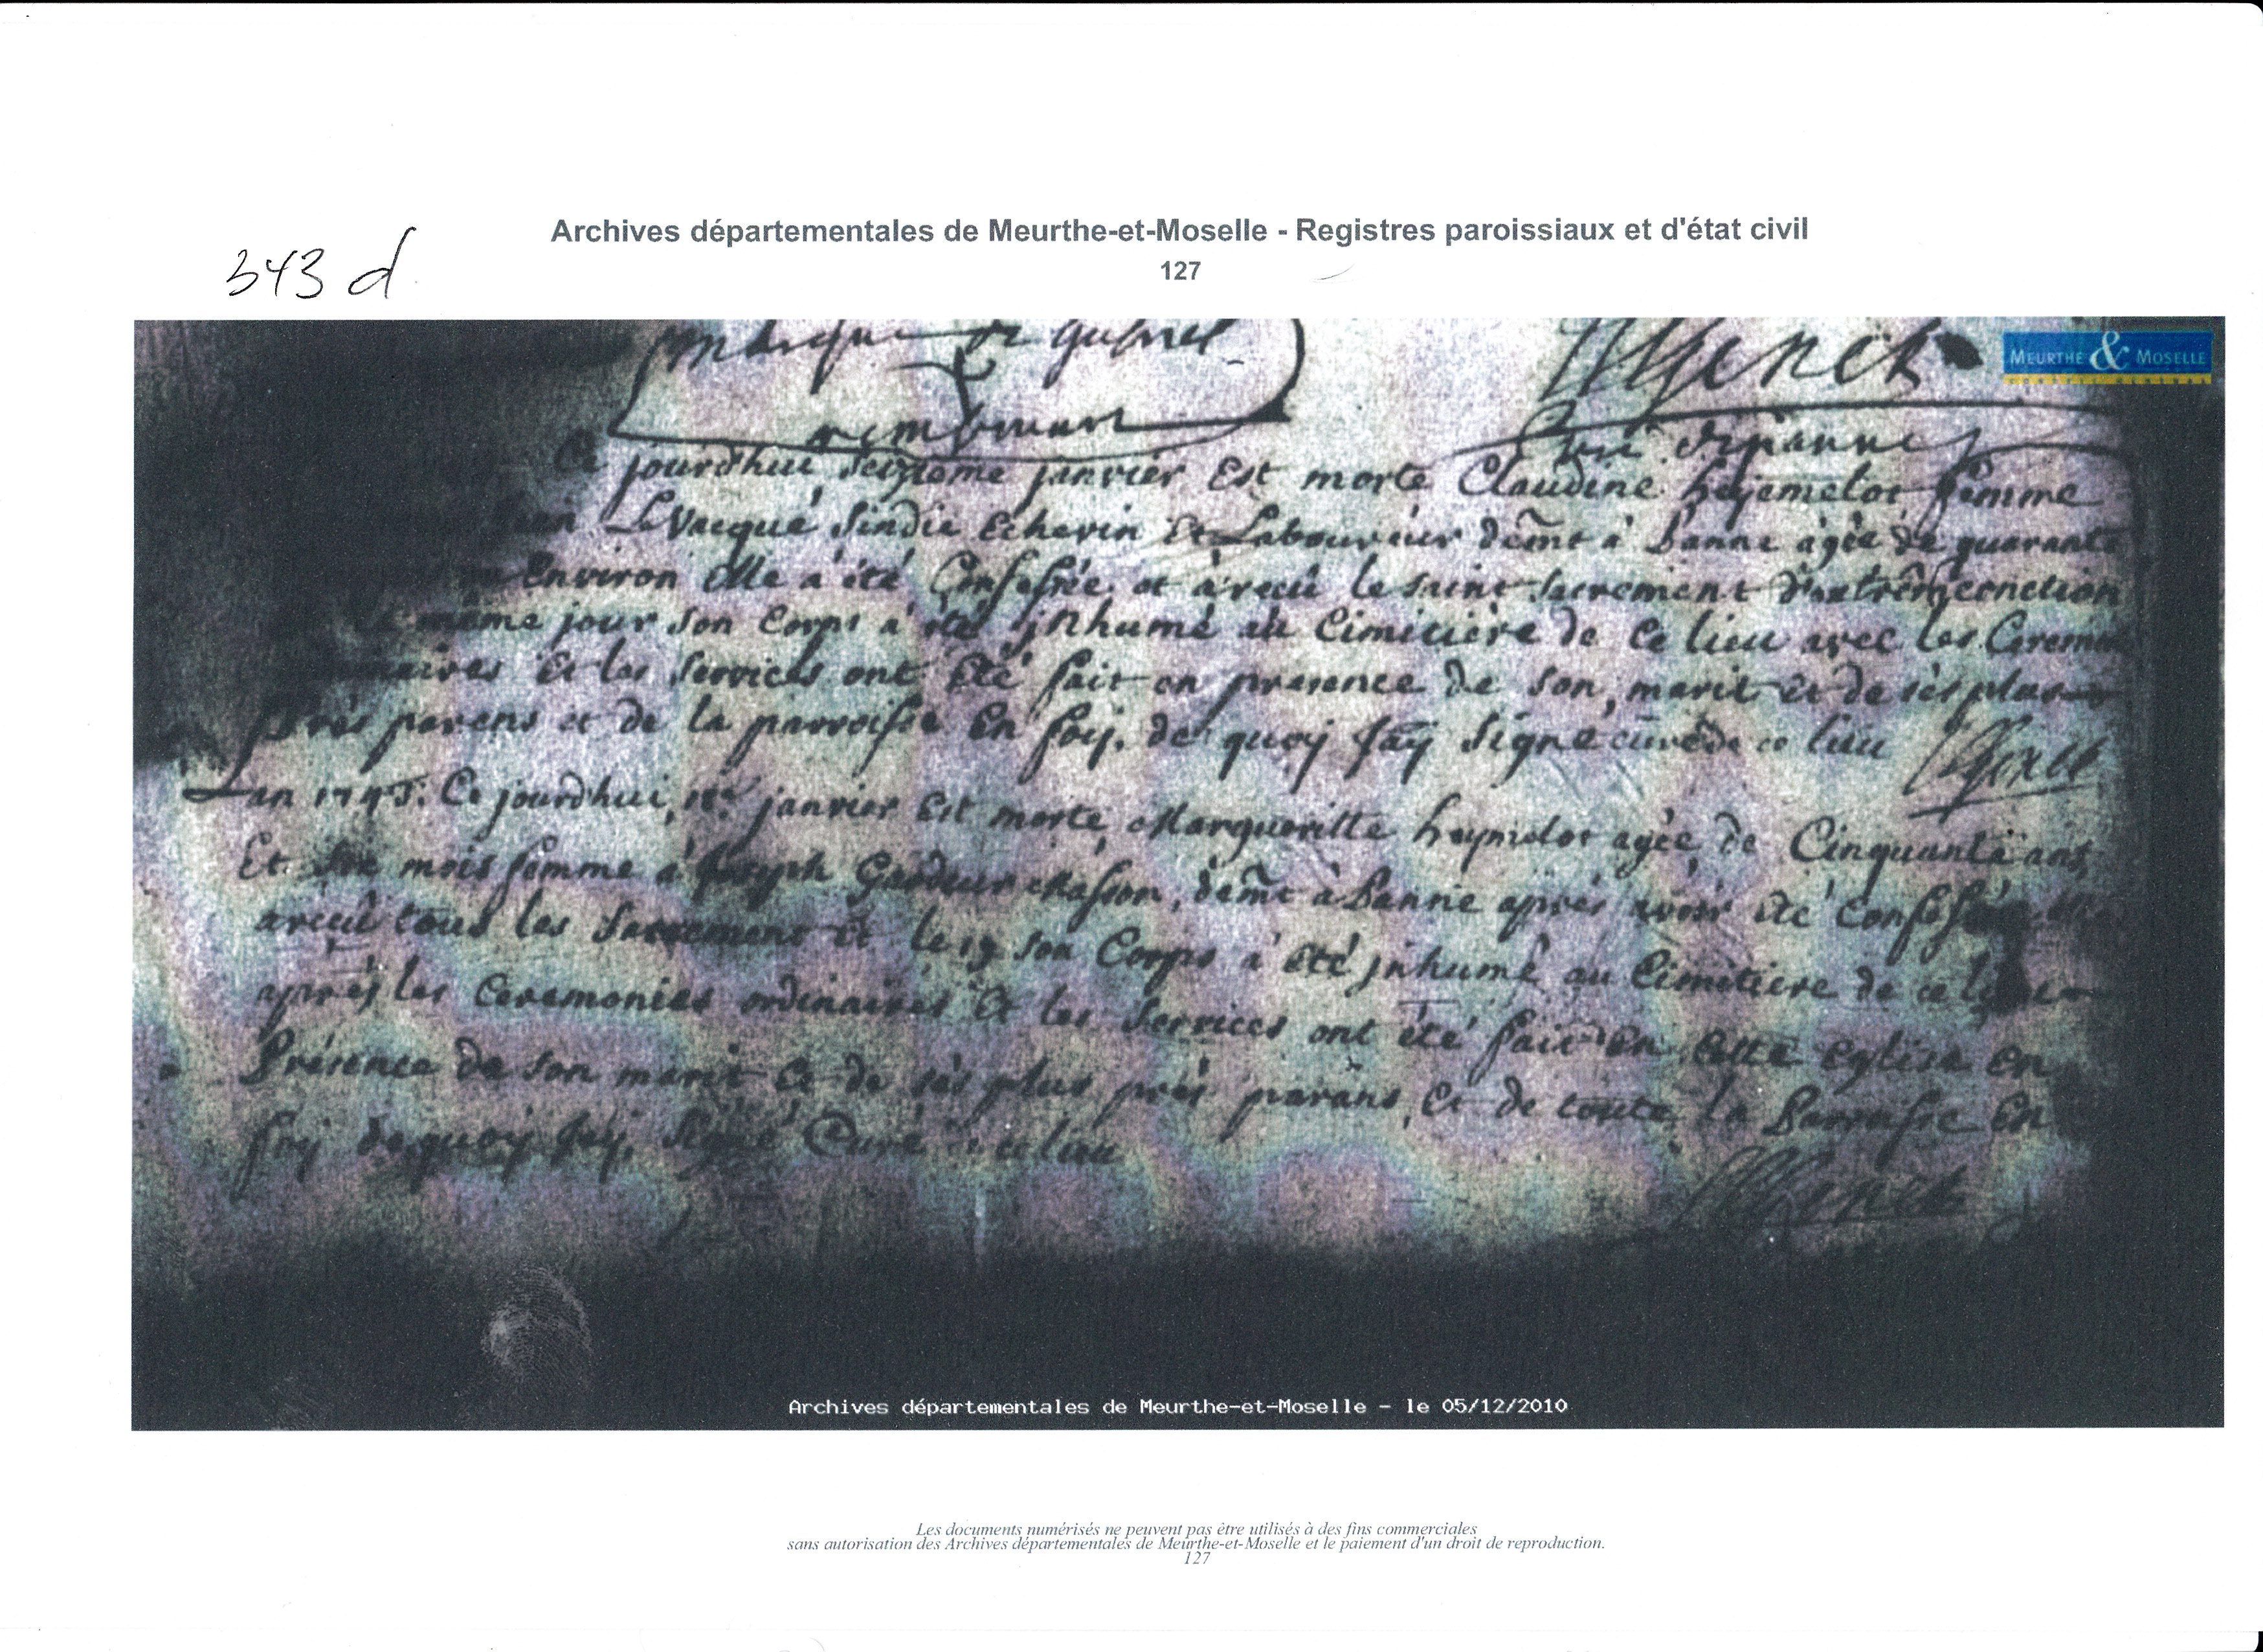 Archives départementales de Meurthe-et-Moselle - Registres paroissiaux et d'état civil
343 d
127
marque de gabriel
MEURTHE & MOSELLE
Ce jourd'hui seizieme janvier Est morte Claudine hejemelot femme
Jean LeVacqué sindic Echevin Et Laboureur demt à Banne agée de quarante
Environ elle a été Confessée et a reçu le saint sacrement
même jour son Corps a été jnhumé au Cimitière de Ce lieu avec les
Et les services ont Eté fait en presence de son marit et de ses plus
Près parens et de la parroisse En foy de quoy jay signé curé de ce lieu
Lan 1745. Ce jourdhui janvier Est morte Margueritte agée de Cinquante ans
Et mois femme a Joseph masson, demt a Banne après avoir été
areçu tous les Sacremens et le 19 son Corps a été jnhumé au Cimitiere de ce
après les Ceremonies ordinaires Et les Services ont été fait En Cette Eglise En
Présence de son marit Et de ses plus près parans, Et de toute la En
foy de quoy jay signé Curé de ce lieu
Archives départementales de Meurthe-et-Moselle - le 05/12/2010
Les documents numérisés ne peuvent pas être utilisés à des fins commerciales
sans autorisation des Archives départementales de Meurthe-et-Moselle et le paiement d'un droit de reproduction.
127